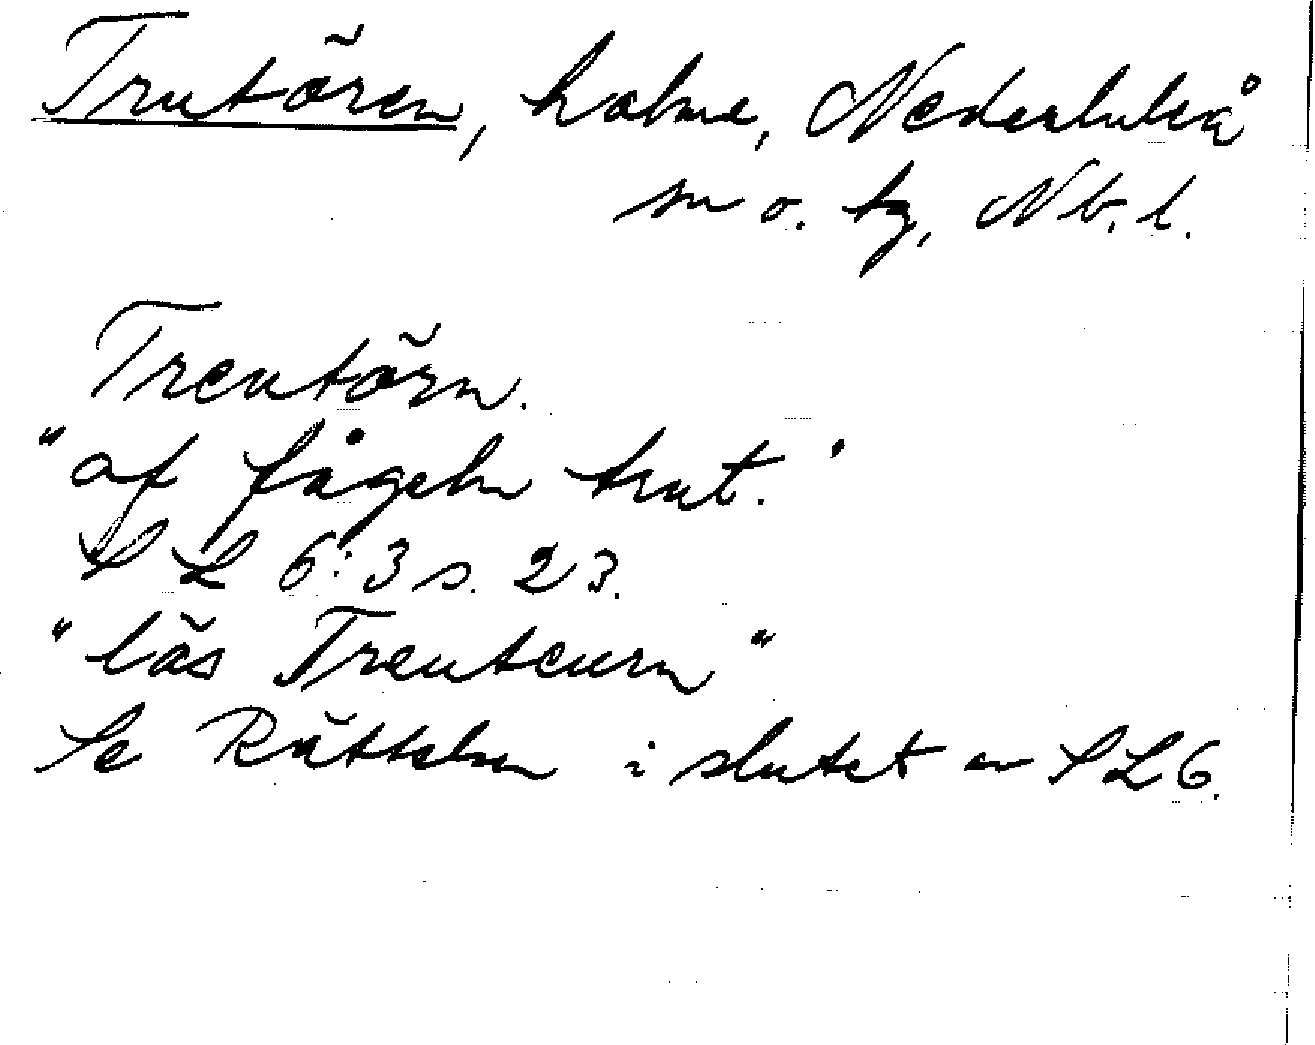 Trutören, holme, Nederluleå
sn o. tg, Nb. l.
Treutörn.
"af fågeln trut."
SL 6:3 s. 23.
"läs Treuteurn"
Se Rättelser i slutet av SL 6.